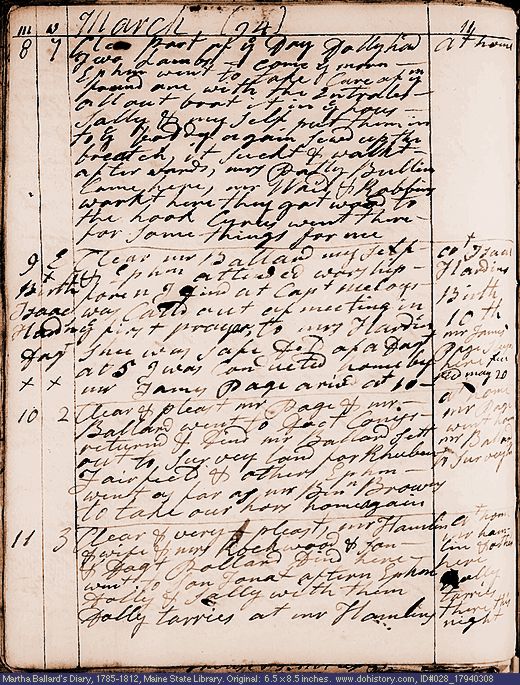 m w March (94) 14
8 7 Clear Part of ye Day Dolly had at home
Two Lambs Come ye morn
Ephm went to take Care of ym
found one with the Entrales
all out brot it in ye hous
Sally & my self put them in
to ye Body again sewd up the
breatch, it suckt & walkt
afterwards, mrs Polly Bullin
Came here, mr Waid & Robbins
workt here they got wood to
the hook Cyrus went there
for some things for me
9 E Clear mr Ballard my self at Isaac
+ + & Ephm attended worship Hardins
Birth foren I Dind at Capt meloys Birth
Isaac was Calld out of meeting in 10th
Harding ye first prayer to mrs Harding mr James
Dagt Shee was safe Dd of a Dagt Page
at 5 I was Conducted home by may 20
+ + mr James Page arivd at 10
10 2 Clear & pleast mr Page & mr at home
Ballard went to Joct Comgs mr Page
returnd & Dind mr Ballard sett went home
out to survey land for Reuben mr Ballard
Fairfield & others Ephm to survey
went as far as mr Bn Browns
to take our hors home again
11 3 Clear & very pleast, mr Hamlin at hom
& wife & mrs Rockwood & son mr ham
& Dagt Bolland Dind here line &
went to Jon afternn Ephm here
Dolly & Sally with them Dolly
Dolly tarries at mr Hamlins tarries
there this
night
Martha Ballard's Diary, 1785-1812, Maine State Library. Original: 6.5 x 8.5 inches. www.dohistory.com, ID#028_17940308